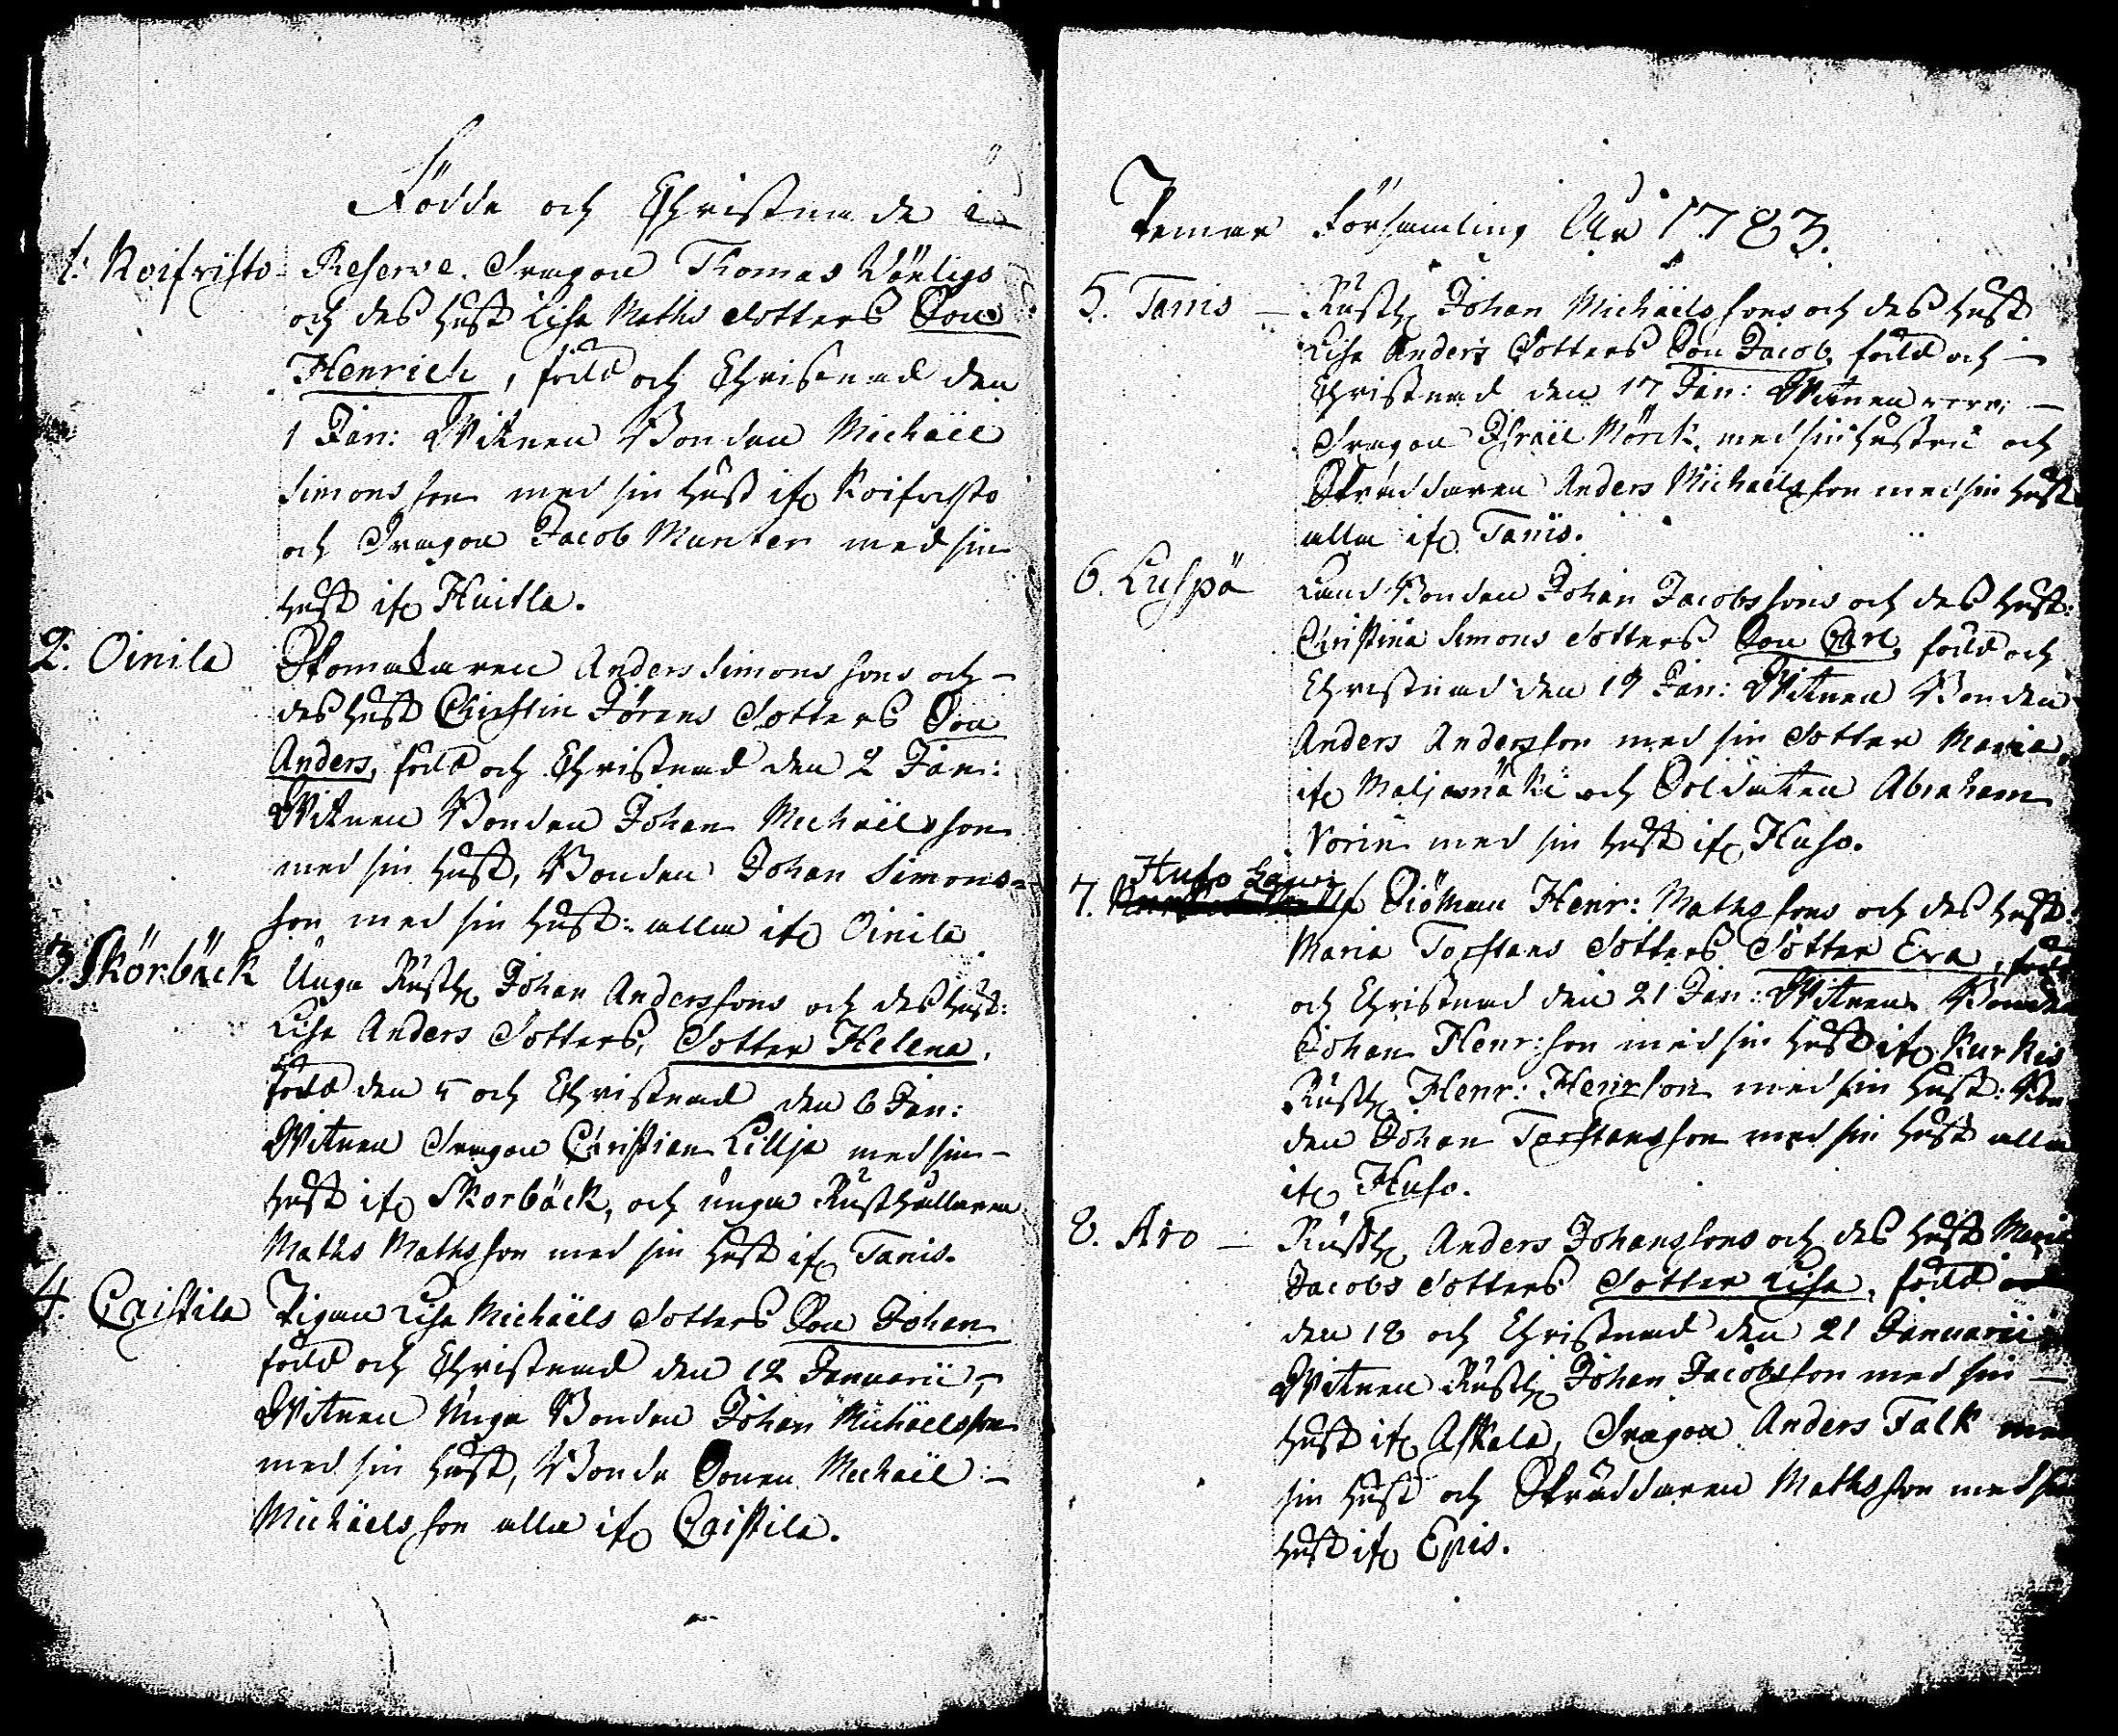 Födde och Christnade i
1. Koifristo Reserve Dragon Thomas Wänligs
och des Hust Lisa Maths dotters Son
Henrich, född och Christnad den
1 Jan: Witnen Bonden Michaël
Simonsson med sin Hust ifr Koifristo
och Dragon Jacob Munter med sin
Hust ifr Huitla.
2. Oinila Skomakaren Anders Simonssons och
des Hust Christin Jörens Dotters Son
Anders, född och Christnad den 2 Jan:
Witnen Bonden Johan Michaëlsson
med sin Hust, Bonden Johan Simons=
son med sin Hust: alla ifr Oinila
3. Skörbäck Unga Rusth Johan Anderssons och des Hust:
Lisa Anders Dotters, Dotter Helena,
född den 5 och Christnad den 6 Jan:
Witnen Dragon Christian Lillja med sin
Hust ifr Skorbäck, och unga Rusthållaren
Maths Mathsson med sin Hust ifr Tanis.
4. Caistila Pigan Lisa Michaëls Dotters Son Johan
född och Christnad den 12 Januarii,
Witnen Unga Bonden Johan Michaëlsson
med sin Hust, Bonde Sonen Michaël
Michaëlsson alla ifr Caistila.
Pemar Församling Åhr 1783.
5. Tanis Rusth Johan Michaëlssons och des Hust
Lisa Anders Dotters Son Jacob, född och
Christnad den 17 Jan: Witnen voro;
Dragon Israël Mörck, med sin Hustru och
Skräddaren Anders Michaëlsson med sin Hust
alla ifr Tanis.
6. Luspä Land Bonden Johan Jacobssons och des Hust:
Christina Simons dotters Son Carl, född och
Christnad den 19 Jan: Witnen Bonden
Anders Andersson med sin Dotter Maria,
ifr Maljamäki och Soldaten Abraham
Norin med sin Hust ifr Huso.
Huso
7. Siöman Henr: Mathssons och des Hust:
Maria Torstans Dotters Dotter Eva, född
och Christnad den 21 Jan: Witnen Bonden
Johan Henr:son med sin Hust ifr Kurkis
Rusth Henr: Henrson med sin Hust: Bon
den Johan Torstansson med sin Hust alla
ifr Huso.
8. Aro Rusth Anders Johanssons och des Hust Maria
Jacobs dotters Dotter Lisa, född
den 18 och Christnad den 21 Januarii
Witnen Rusth Johan Jacobsson med sin
Hust ifr Askala, Dragon Anders Falk med
sin Hust och Skräddaren Mathsson med sin
Hust ifr Epis.